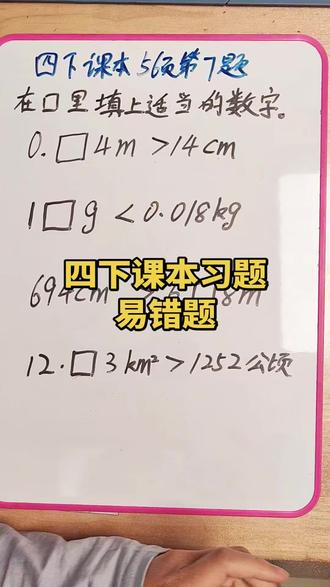 四下课本56页第7题
在□里填上适当的数字。
0.□4m>14cm
1□g<0.018kg
694cm
四下课本习题
易错题
12.□3km²>1252公顷